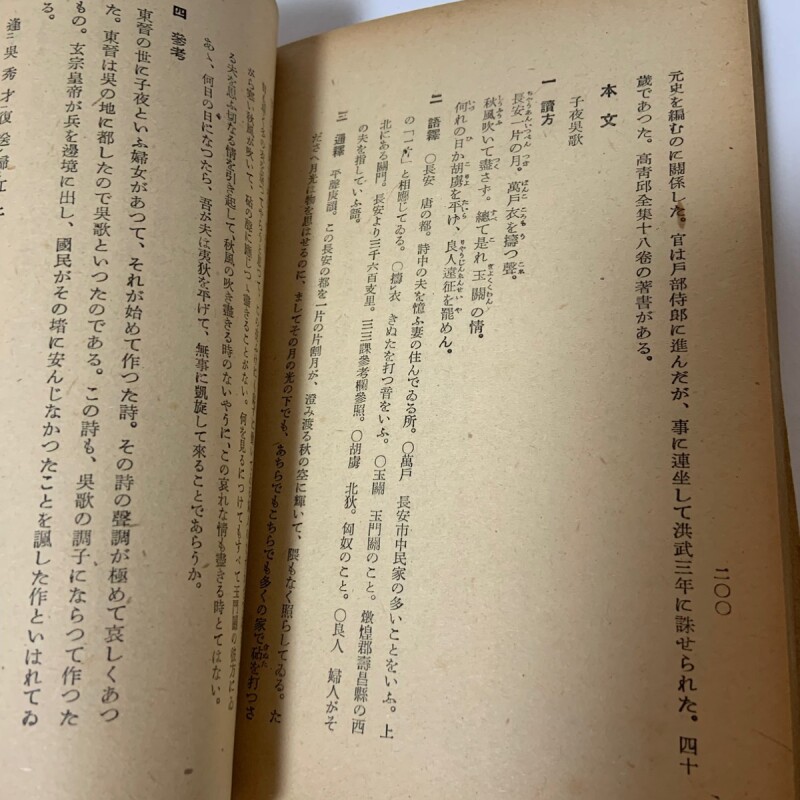 二〇〇
元史を編むのに關係した。官は戸部侍郎に進んだが、事に連坐して洪武三年に誅せられた。四十
歳であつた。高靑邱全集十八卷の著書がある。
本文
子夜吳歌
一 讀方
長安一片の月。萬戸衣を擣つ聲。
秋風吹いて盡さず。總て是れ玉關の情。
何れの日か胡虜を平げ、良人遠征を罷めん。
二 語釋 〇長安 唐の都。詩中の夫を憶ふ妻の住んでゐる所。〇萬戸 長安市中民家の多いことをいふ。上
の「一片」と相應じてゐる。〇擣衣 きぬたを打つ音をいふ。〇玉關 玉門關のこと。燉煌郡壽昌縣の西
北にある關門。長安より三千六百支里。三三課參考欄參照。〇胡虜 北狄。匈奴のこと。〇良人 婦人がそ
の夫を指していふ語。
三 通釋 平聲庚韻。この長安の都を一片の片割月が、澄み渡る秋の空に輝いて、隈もなく照らしてゐる。た
ださへ月光は物を思はせるのに、ましてその月の光の下でも、あちらでもこちらでも多くの家で砧を打つさ
がら寒い秋風が吹いて、砧の
盡きることがない。何を見るにつけてもすべて玉門關の彼方にゐ
る夫を思ふ切なる情を引き起して、秋風の吹き盡きる時のないやうに、この哀れな情も盡きる時とてはない。
あゝ、何日の日になつたら、吾が夫は夷狄を平げて、無事に凱旋して來ることであらうか。
四 參考
東晉の世に子夜といふ婦女があつて、それが始めて作つた詩。その詩の聲調が極めて哀しくあつ
た。東晉は吳の地に都したので吳歌といつたのである。この詩も、吳歌の調子にならつて作つた
もの。玄宗皇帝が兵を邊境に出し、國民がその堵に安んじなかつたことを諷した作といはれてゐ
る。
逢吳秀才復
歸江上